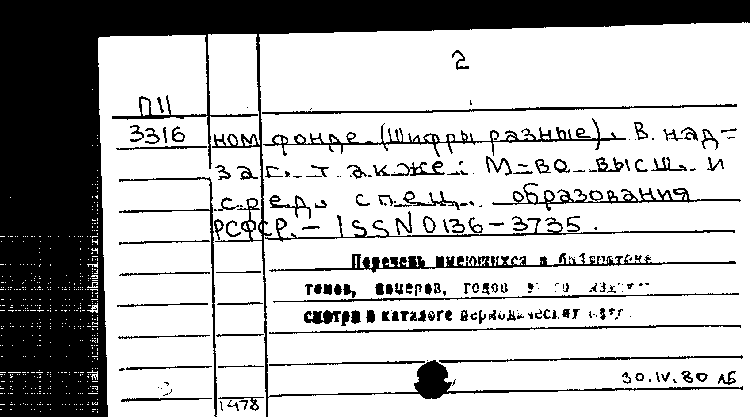 2
П11
3316 ном фонде. (Шифры разные). В над=
заг. также: М-во высш. и
сред. спец. образования
РСФСР. – ISSN 0136-3735.
Перечень имеющихся в
томов, номеров, годов
смотри в каталоге периодических
30.IV.80 ЛБ
1478